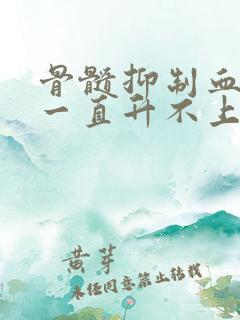 骨髓抑制血
一直升不上
黄芽
未经同意禁止转载